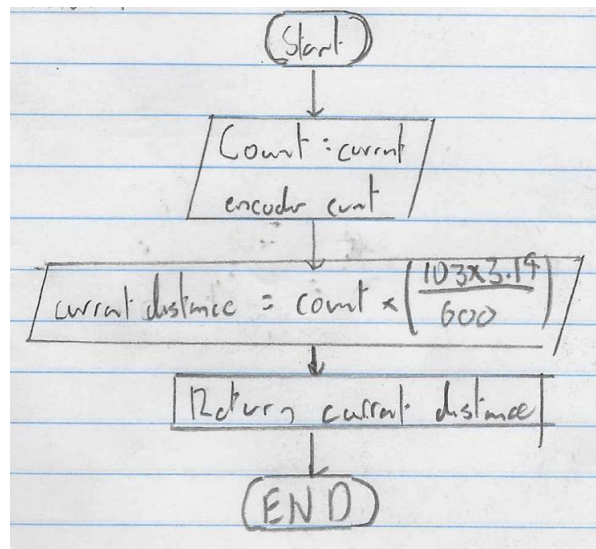 Start
Count = current
encoder count
current distance = count × (103×3.14 / 600)
Return current distance
END